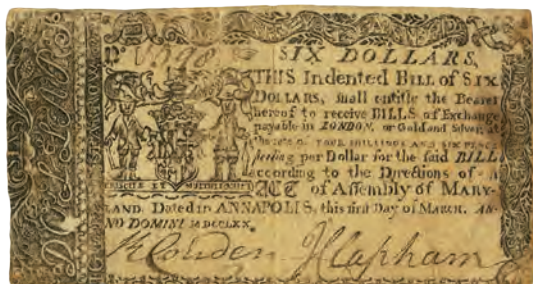 SIX DOLLARS.
THIS Indented BILL of SIX
DOLLARS, shall entitle the Bearer
hereof to receive BILLS of Exchange
payable in LONDON, or Gold and Silver, at
the rate of FOUR SHILLINGS AND SIX PENCE
sterling per Dollar for the said BILL
according to the Directions of a
ACT of Assembly of MARY-
LAND. Dated in ANNAPOLIS, this first Day of MARCH. AN-
NO DOMINI MDCCLXX.
J Clapham